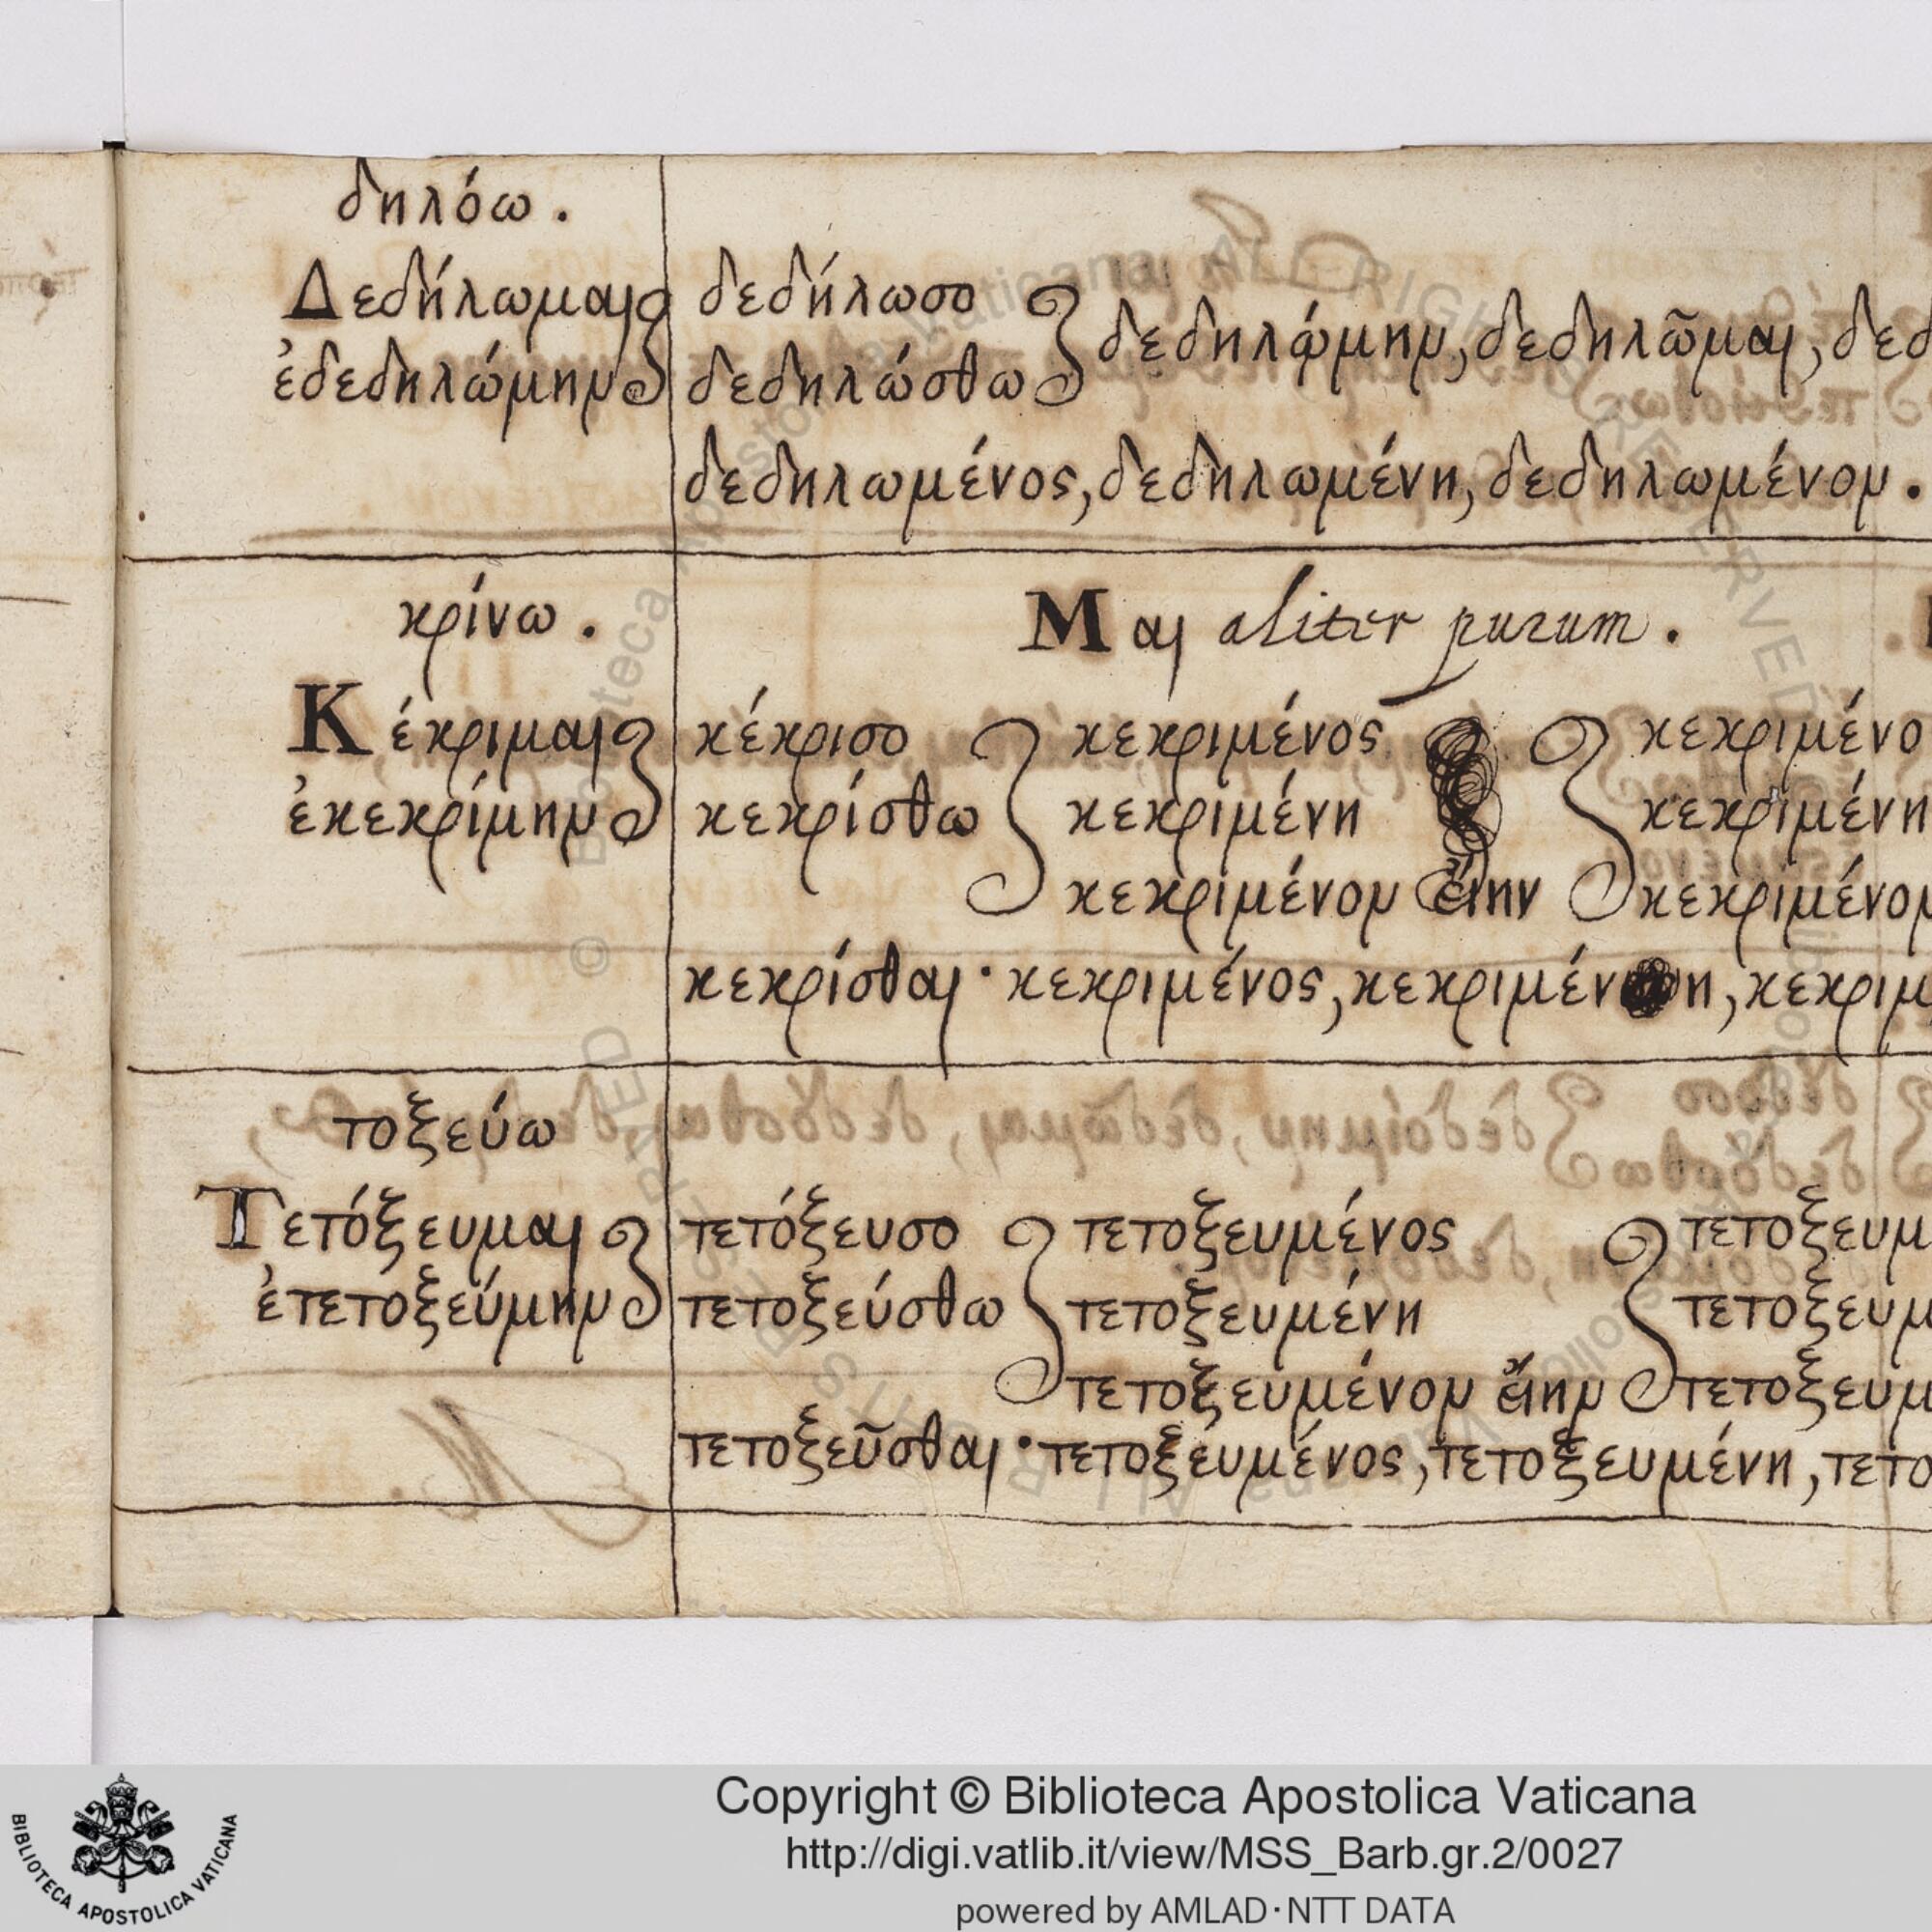 δηλόω .
Δεδήλωμαι δεδήλωσο
ἐδεδηλώμην δεδηλώσθω δεδηλῴμην, δεδηλῶμαι, δεδ
δεδηλωμένος, δεδηλωμένη, δεδηλωμένον .
κρίνω . Μαι aliter purum .
Κέκριμαι κέκρισο κεκριμένος κεκριμένο
ἐκεκρίμην κεκρίσθω κεκριμένη κεκριμένη
κεκριμένον εἴην κεκριμένον
κεκρίσθαι · κεκριμένος, κεκριμένη, κεκριμ
τοξεύω
Τετόξευμαι τετόξευσο τετοξευμένος τετοξευμ
ἐτετοξεύμην τετοξεύσθω τετοξευμένη τετοξευμ
τετοξευμένον εἴην τετοξευμ
τετοξεῦσθαι · τετοξευμένος, τετοξευμένη, τετο
Copyright © Biblioteca Apostolica Vaticana
http://digi.vatlib.it/view/MSS_Barb.gr.2/0027
powered by AMLAD·NTT DATA
BIBLIOTECA APOSTOLICA VATICANA